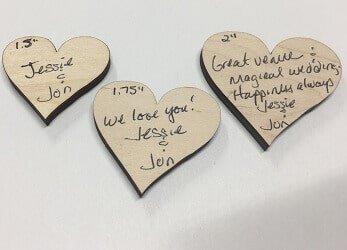 1.5"
Jessie
&
Jon
1.75"
We love you!
Jessie
&
Jon
2"
Great venue &
magical wedding
Happiness always
Jessie
&
Jon